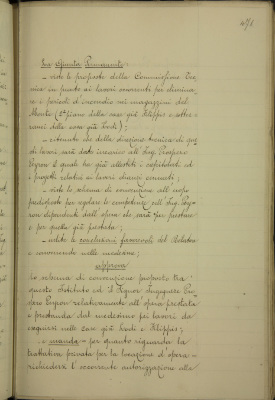 471
La Giunta Permanente
- viste le proposte della Commissione Tec-
nica in punto ai lavori occorrenti per elimina-
re i pericoli d'incendio nei magazzini del
Monte (2° piano della casa già Filippis e sotter-
ranei della casa già Lodi);
- ritenuto che della direzione tecnica di que-
di lavori sarà dato incarico all'Ing. Prospero
Peyron il quale ha già allestiti i capitolati ed
i progetti relativi ai lavori stessi
- visto lo schema di convenzione all'uopo
predisposto per regolare le competenze dell'Ing. Pey-
ron dipendenti dall'opera che sarà per prestare
e per quella già prestata;
- udite le conclusioni favorevoli del Relatore
e convenendo nelle medesime;
approva
lo schema di convenzione proposto tra
questo Istituto ed il Signor Ingegnere Pro-
spero Peyron relativamente all'opera prestata
e prestanda dal medesimo pei lavori da
eseguirsi nelle case già Lodi e Filippis;
e manda - per quanto riguarda la
trattativa privata per la locazione d'opera -
richiedersi l'occorrente autorizzazione alla